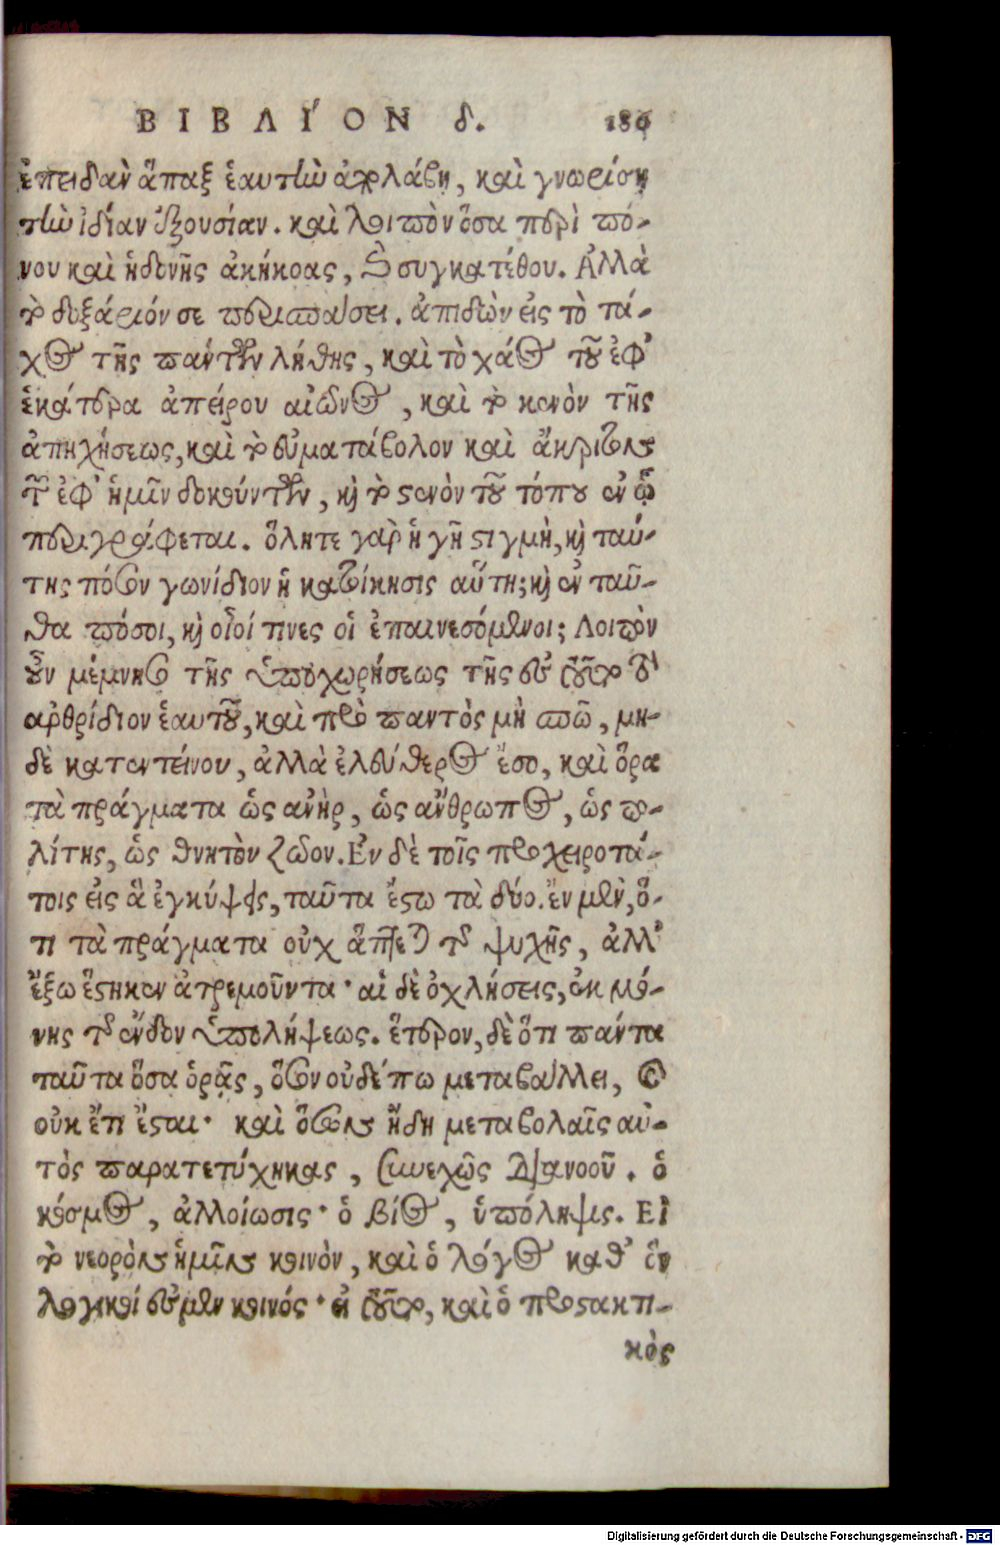 ΒΙΒΛΙ´ΟΝ δ. 186
ἐπειδὰν ἅπαξ ἑαυτὴν ἀπολάβῃ, καὶ γνωρίσῃ
τὴν ἰδίαν ἐξουσίαν. καὶ λοιπὸν ὅσα περὶ πό-
νου καὶ ἡδονῆς ἀκήκοας, καὶ συγκατέθου. Ἀλλὰ
τὸ δοξάριόν σε περισπάσει. ἀπιδὼν εἰς τὸ τά-
χος τῆς πάντων λήθης, καὶ τὸ χάος τοῦ ἐφ’
ἑκάτερα ἀπείρου αἰῶνος, καὶ τὸ κενὸν τῆς
ἀπηχήσεως, καὶ τὸ εὐματάβολον καὶ ἄκριτον
τῶν ἐφ’ ἡμῖν δοκούντων, καὶ τὸ στενὸν τοῦ τόπου ἐν ᾧ
περιγράφεται. ὅλητε γὰρ ἡ γῆ στιγμὴ, καὶ ταύ-
της πόστον γωνίδιον ἡ κατοίκησις αὕτη; καὶ ἐνταῦ-
θα πόσοι, καὶ οἷοί τινες οἱ ἐπαινεσόμενοι; Λοιπὸν
οὖν μέμνησο τῆς ὑποχωρήσεως τῆς εἰς τοῦτο τὸ
ἀρθρίδιον ἑαυτοῦ, καὶ πρὸ παντὸς μὴ σπῶ, μη-
δὲ κατεντείνου, ἀλλὰ ἐλεύθερος ἔσο, καὶ ὅρα
τὰ πράγματα ὡς ἀνὴρ, ὡς ἄνθρωπος, ὡς πο-
λίτης, ὡς θνητὸν ζῶον. Ἐν δὲ τοῖς προχειροτά-
τοις εἰς ἃ ἐγκύψεις, ταῦτα ἔστω τὰ δύο. ἓν μὲν, ὅ-
τι τὰ πράγματα οὐχ ἅπτεται τῆς ψυχῆς, ἀλλ’
ἔξω ἕστηκεν ἀτρεμοῦντα· αἱ δὲ ὀχλήσεις, ἐκ μό-
νης τῆς ἔνδον ὑπολήψεως. ἕτερον, δὲ ὅτι πάντα
ταῦτα ὅσα ὁρᾷς, ὅσον οὐδέπω μεταβάλλει, καὶ
οὐκ ἔτι ἔσται· καὶ ὅσων ἤδη μεταβολαῖς αὐ-
τὸς παρατετύχηκας, συνεχῶς διανοοῦ. ὁ
κόσμος, ἀλλοίωσις· ὁ βίος, ὑπόληψις. Εἰ
τὸ νοερὸν ἡμῖν κοινὸν, καὶ ὁ λόγος καθ’ ὃν
λογικοί ἐσμεν κοινός· εἰ τοῦτο, καὶ ὁ προστακτι-
κὸς
Digitalisierung gefördert durch die Deutsche Forschungsgemeinschaft - DFG